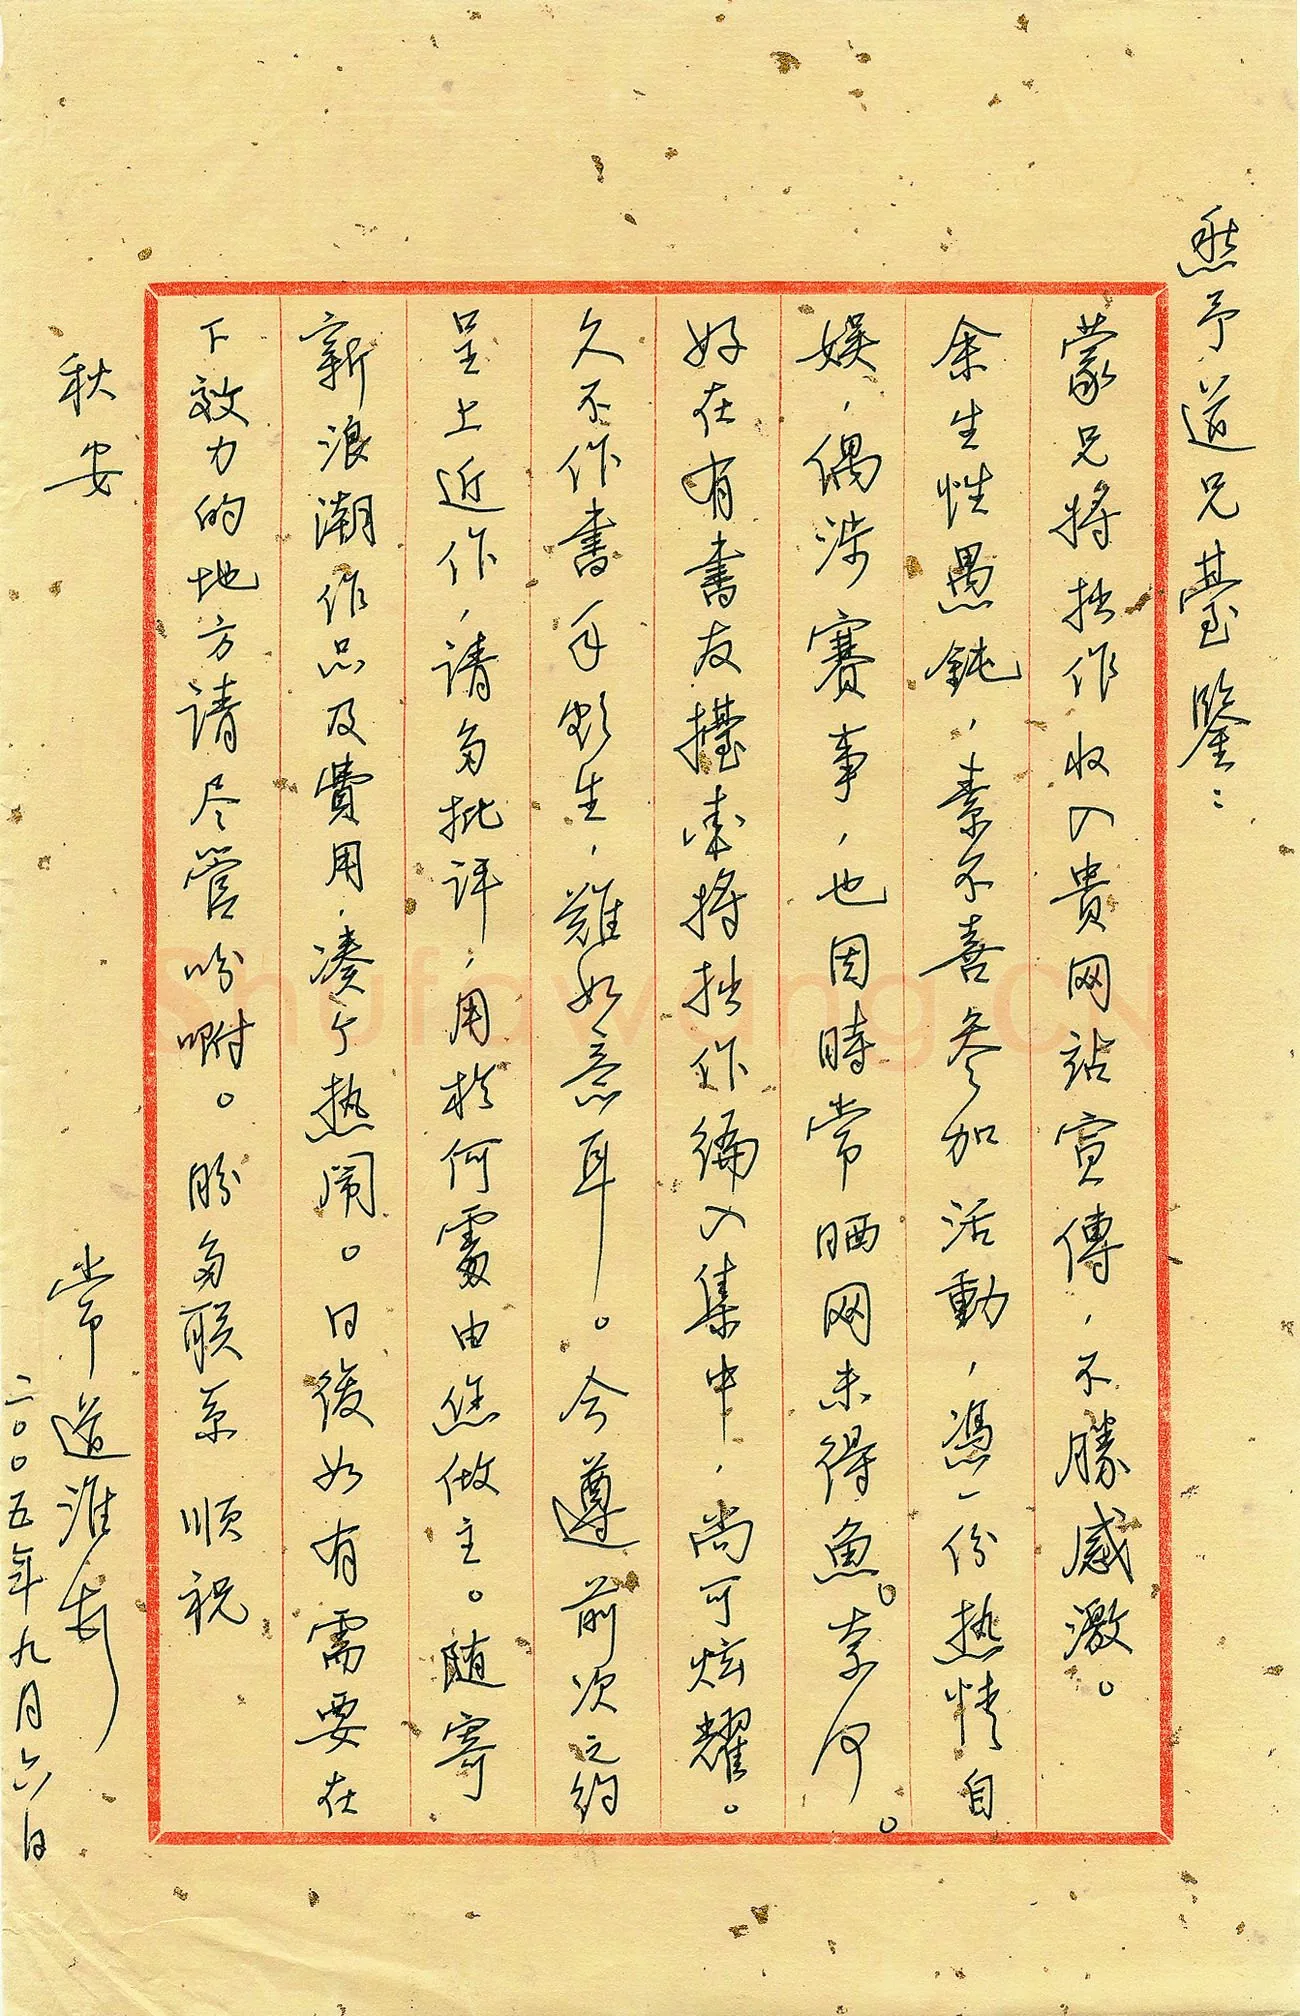 愚予道兄臺鑒：
蒙兄將拙作收入貴网站宣傳，不勝感激。
余生性愚鈍，素不喜参加活動，憑一份热情自
娱，偶涉賽事，也因時常晒网未得魚。奈何。
好在有書友擡举將拙作编入集中，尚可炫耀。
久不作書，手頗生，難如意耳。今遵前次之约
呈上近作，请多批评，用於何處由您做主。随寄
新浪潮作品及費用，凑个热闹。日後如有需要在
下效力的地方请尽管吩咐。盼多联系 顺祝
秋安
常道淮
二〇〇五年九月六日
Shufawang.CN